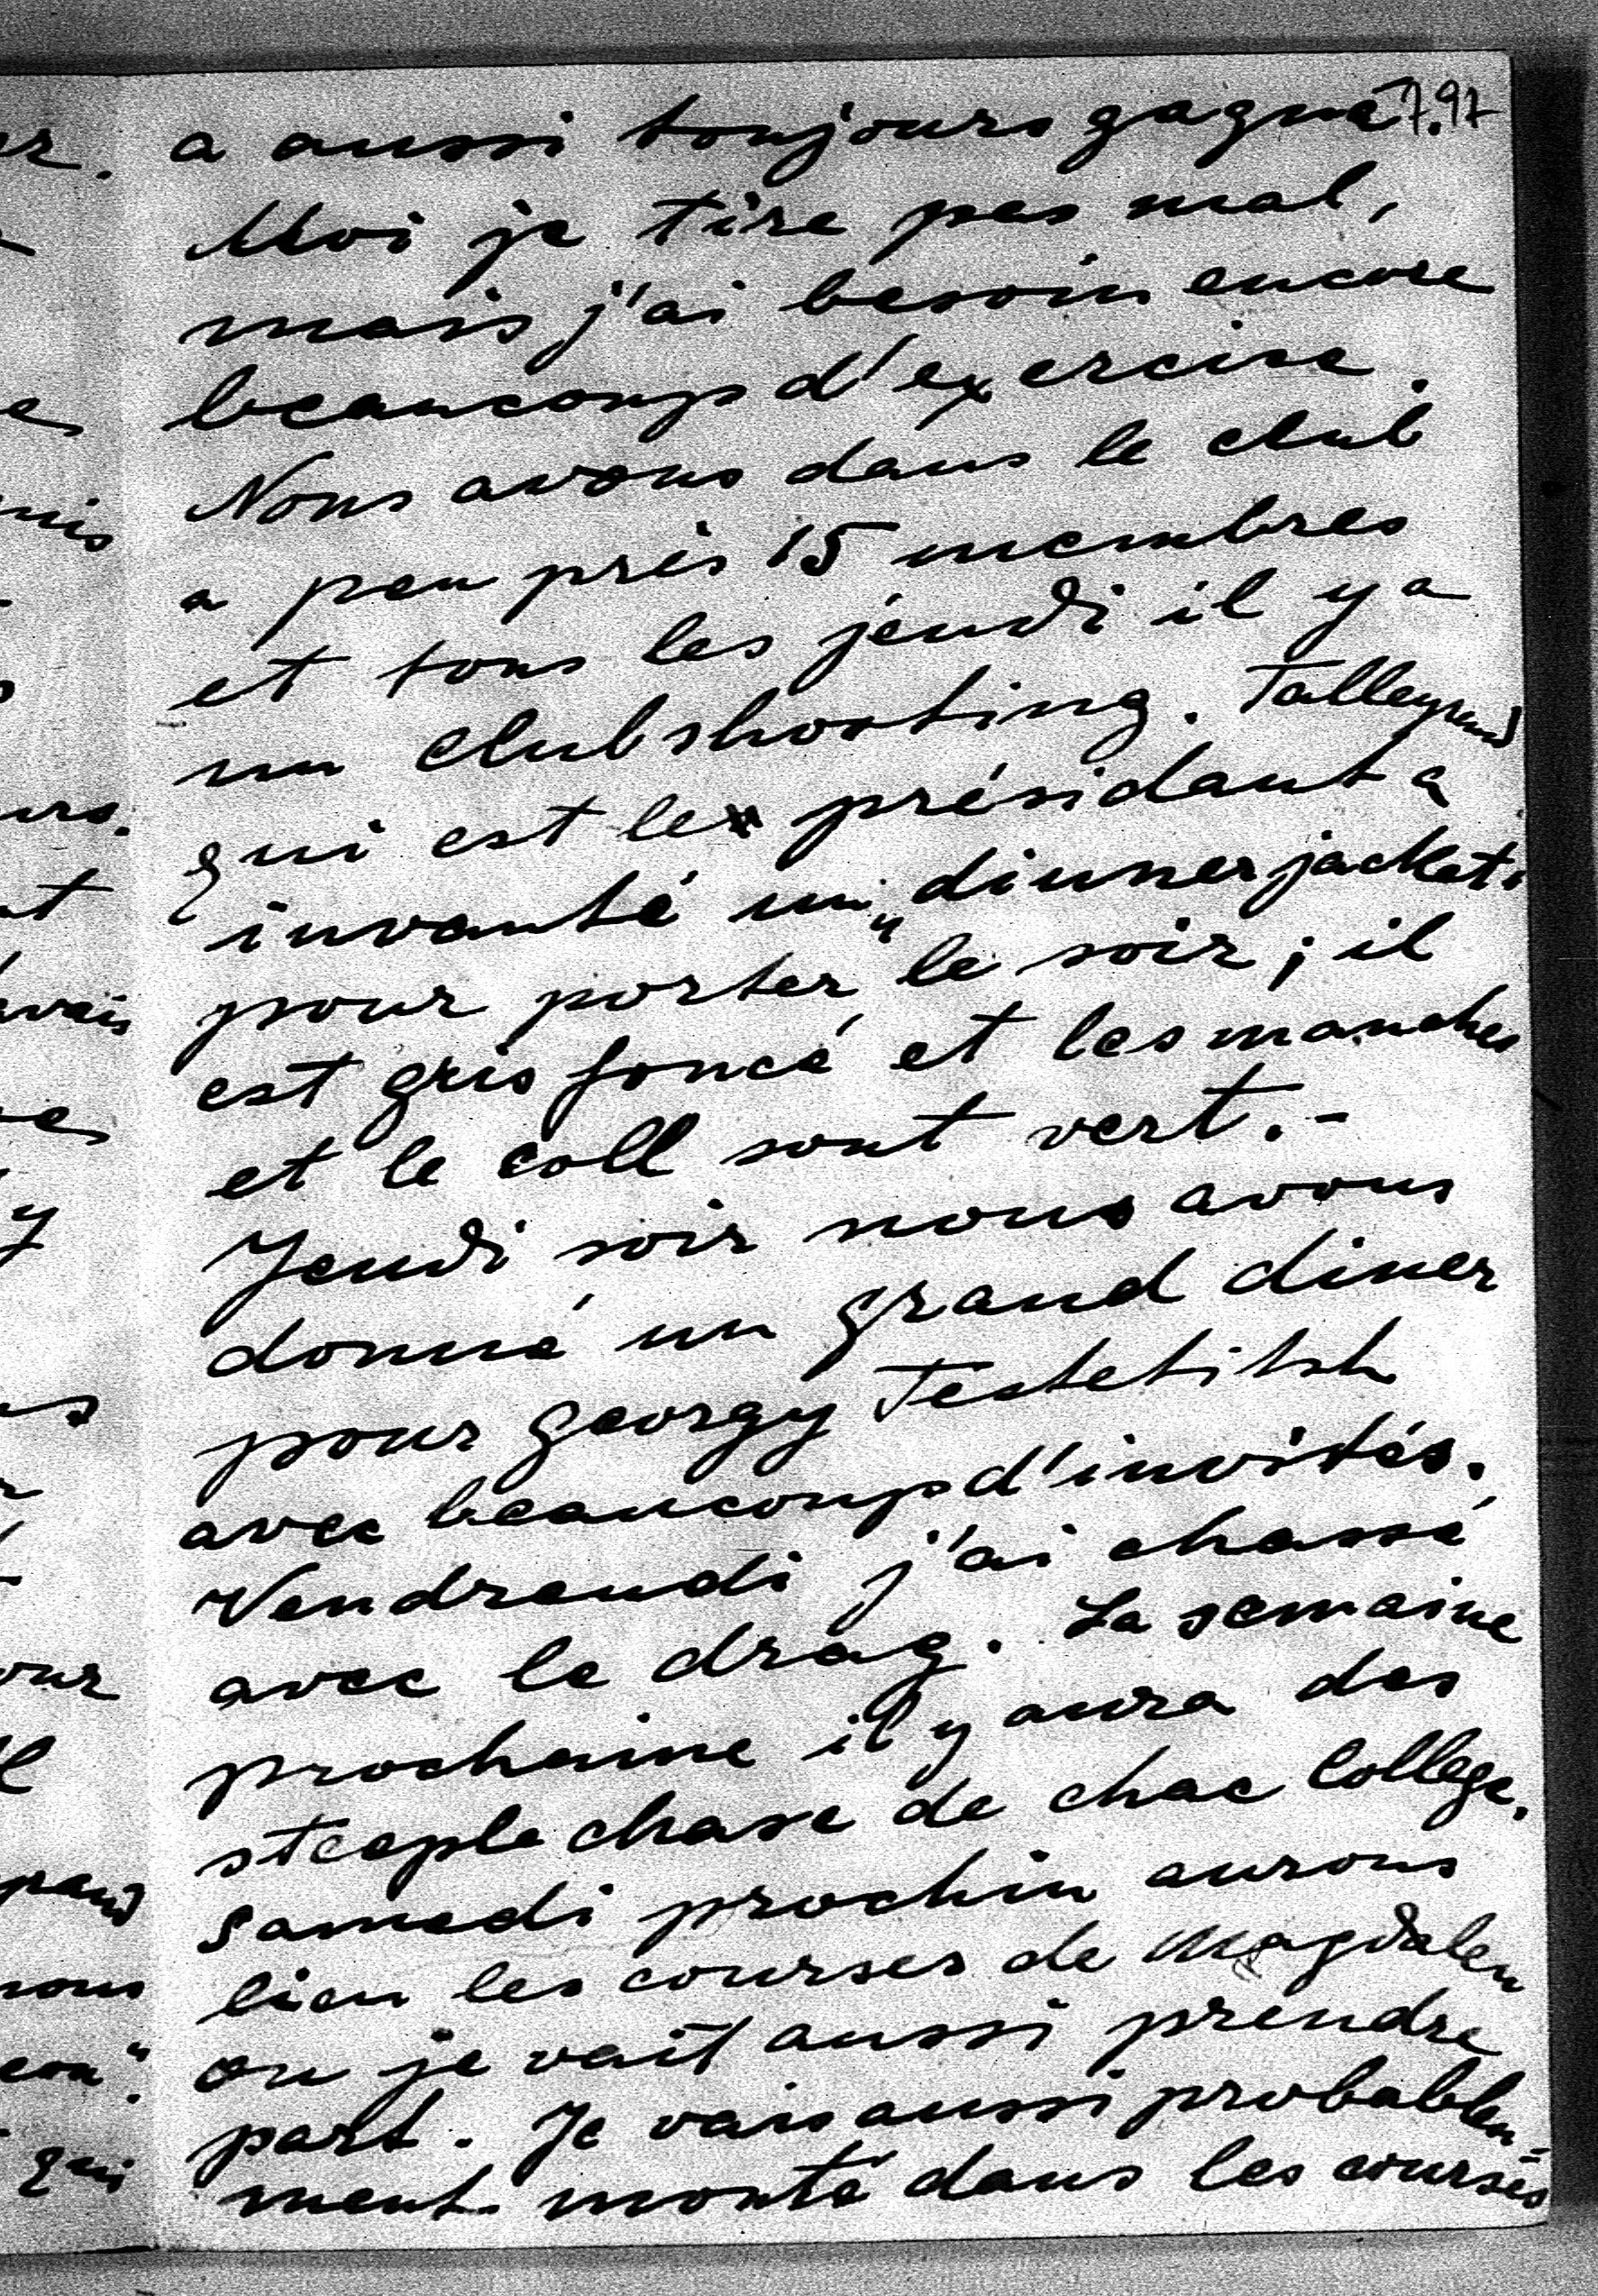 a aussi toujours gagné 7.97
Moi je tire pas mal,
mais j'ai besoin encore
beaucoup d'exercise.
Nous avons dans le club
a peu près 15 membres
et tous les jeudi il y a
un clubshooting. Talleyrand
qui est le présidant a
invanté un „dinner jacket"
pour porter le soir; il
est gris foncé et les manches
et le coll sont vert.-
Jeudi soir nous avons
donné un grand diner
pour Georgy Festetitsh
avec beaucoup d'invités.
Vendreudi j'ai chassé
avec le drag. La semaine
prochaine il y aura des
steeple chase de chac College.
Samedi prochin aurons
lieu les courses de Magdalen
ou je vait aussi prendre
part. Je vais aussi probablen-
ment monté dans les courses
er.
nis
urs.
nt
avais
es
y
our
prand
nous
qui